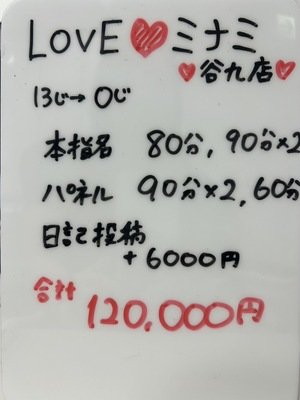 LOVE♥ミナミ
♥谷九店♥
13じ→0じ
本指名 80分, 90分×2
パネル 90分×2, 60分
日記投稿
+6000円
合計
120,000円